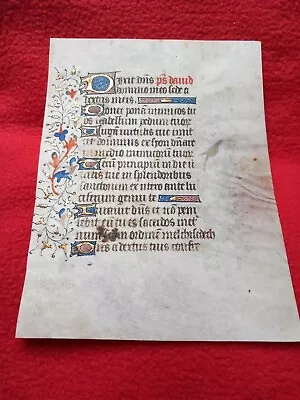 Dixit dn̄s ps dauid
domino meo sede a
dextris meis.
Donec ponā inimicos tuos
scabellum pedum tuor
Uirgam uirtutis tue emit
tet dominus ex syon dn̄are
in medio inimicorū tuorū
Tecum principiū in die uir
tutis tue in splendoribus
sanctorum ex utero ante lu
ciferum genui te
Iurauit dn̄s et nō peni
tebit eū tu es sacerdos in et
num ordinē melchisedech
Dn̄s a dextris tuis confre